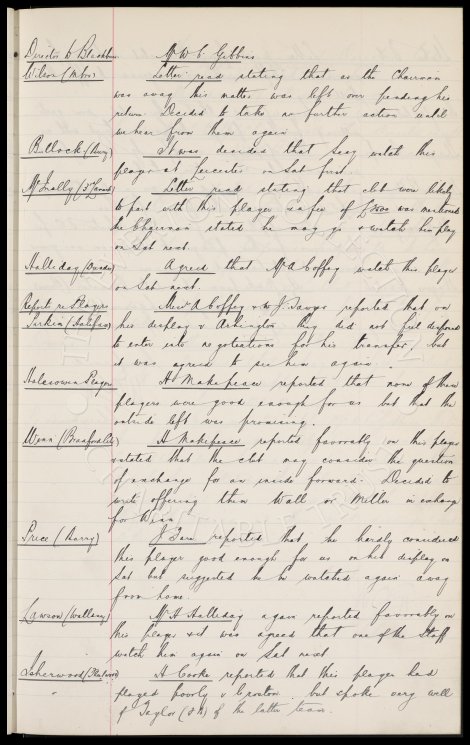 Director to Blackburn Mr W C Gibbins
Wilson (Mbro) Letter read stating that as the Chairman
was away this matter was left over pending his
return. Decided to take no further action until
we hear from them again
Bullock (Bury) It was decided that Seay watch this
player at Leicester on Sat first.
McInally (3rd Lanark) Letter read stating that club were likely
to part with this player & a fee of £2500 was mentioned
the Chairman stated he may go & watch him play
on Sat next.
Halliday (Dundee) Agreed that Mr A Coffey watch this player
on Sat next.
Report re Players Messrs A Coffey & J. Sawyer reported that on
Sirkin (Halifax) his display v Ashington they did not feel disposed
to enter into negotiations for his transfer, but
it was agreed to see him again.
Halesowen Players H Makepeace reported that none of these
players were good enough for us but that the
outside left was promising.
Wenn (Bradford City) H Makepeace reported favorably on this player
& stated that the club may consider the question
of exchange for an inside forward. Decided to
write offering them Wall or Miller in exchange
for Wenn.
Price (Barry) J reported that he hardly considered
this player good enough for us on his display on
Sat but suggested he be watched again away
from home.
Lawson (Wallasey) Mr H Halliday again reported favorably on
this player & it was agreed that one of the Staff
watch him again on Sat next
Isherwood (Fleetwood) H Cooke reported that this player had
" played poorly v Preston but spoke very well
of Taylor of the latter team.